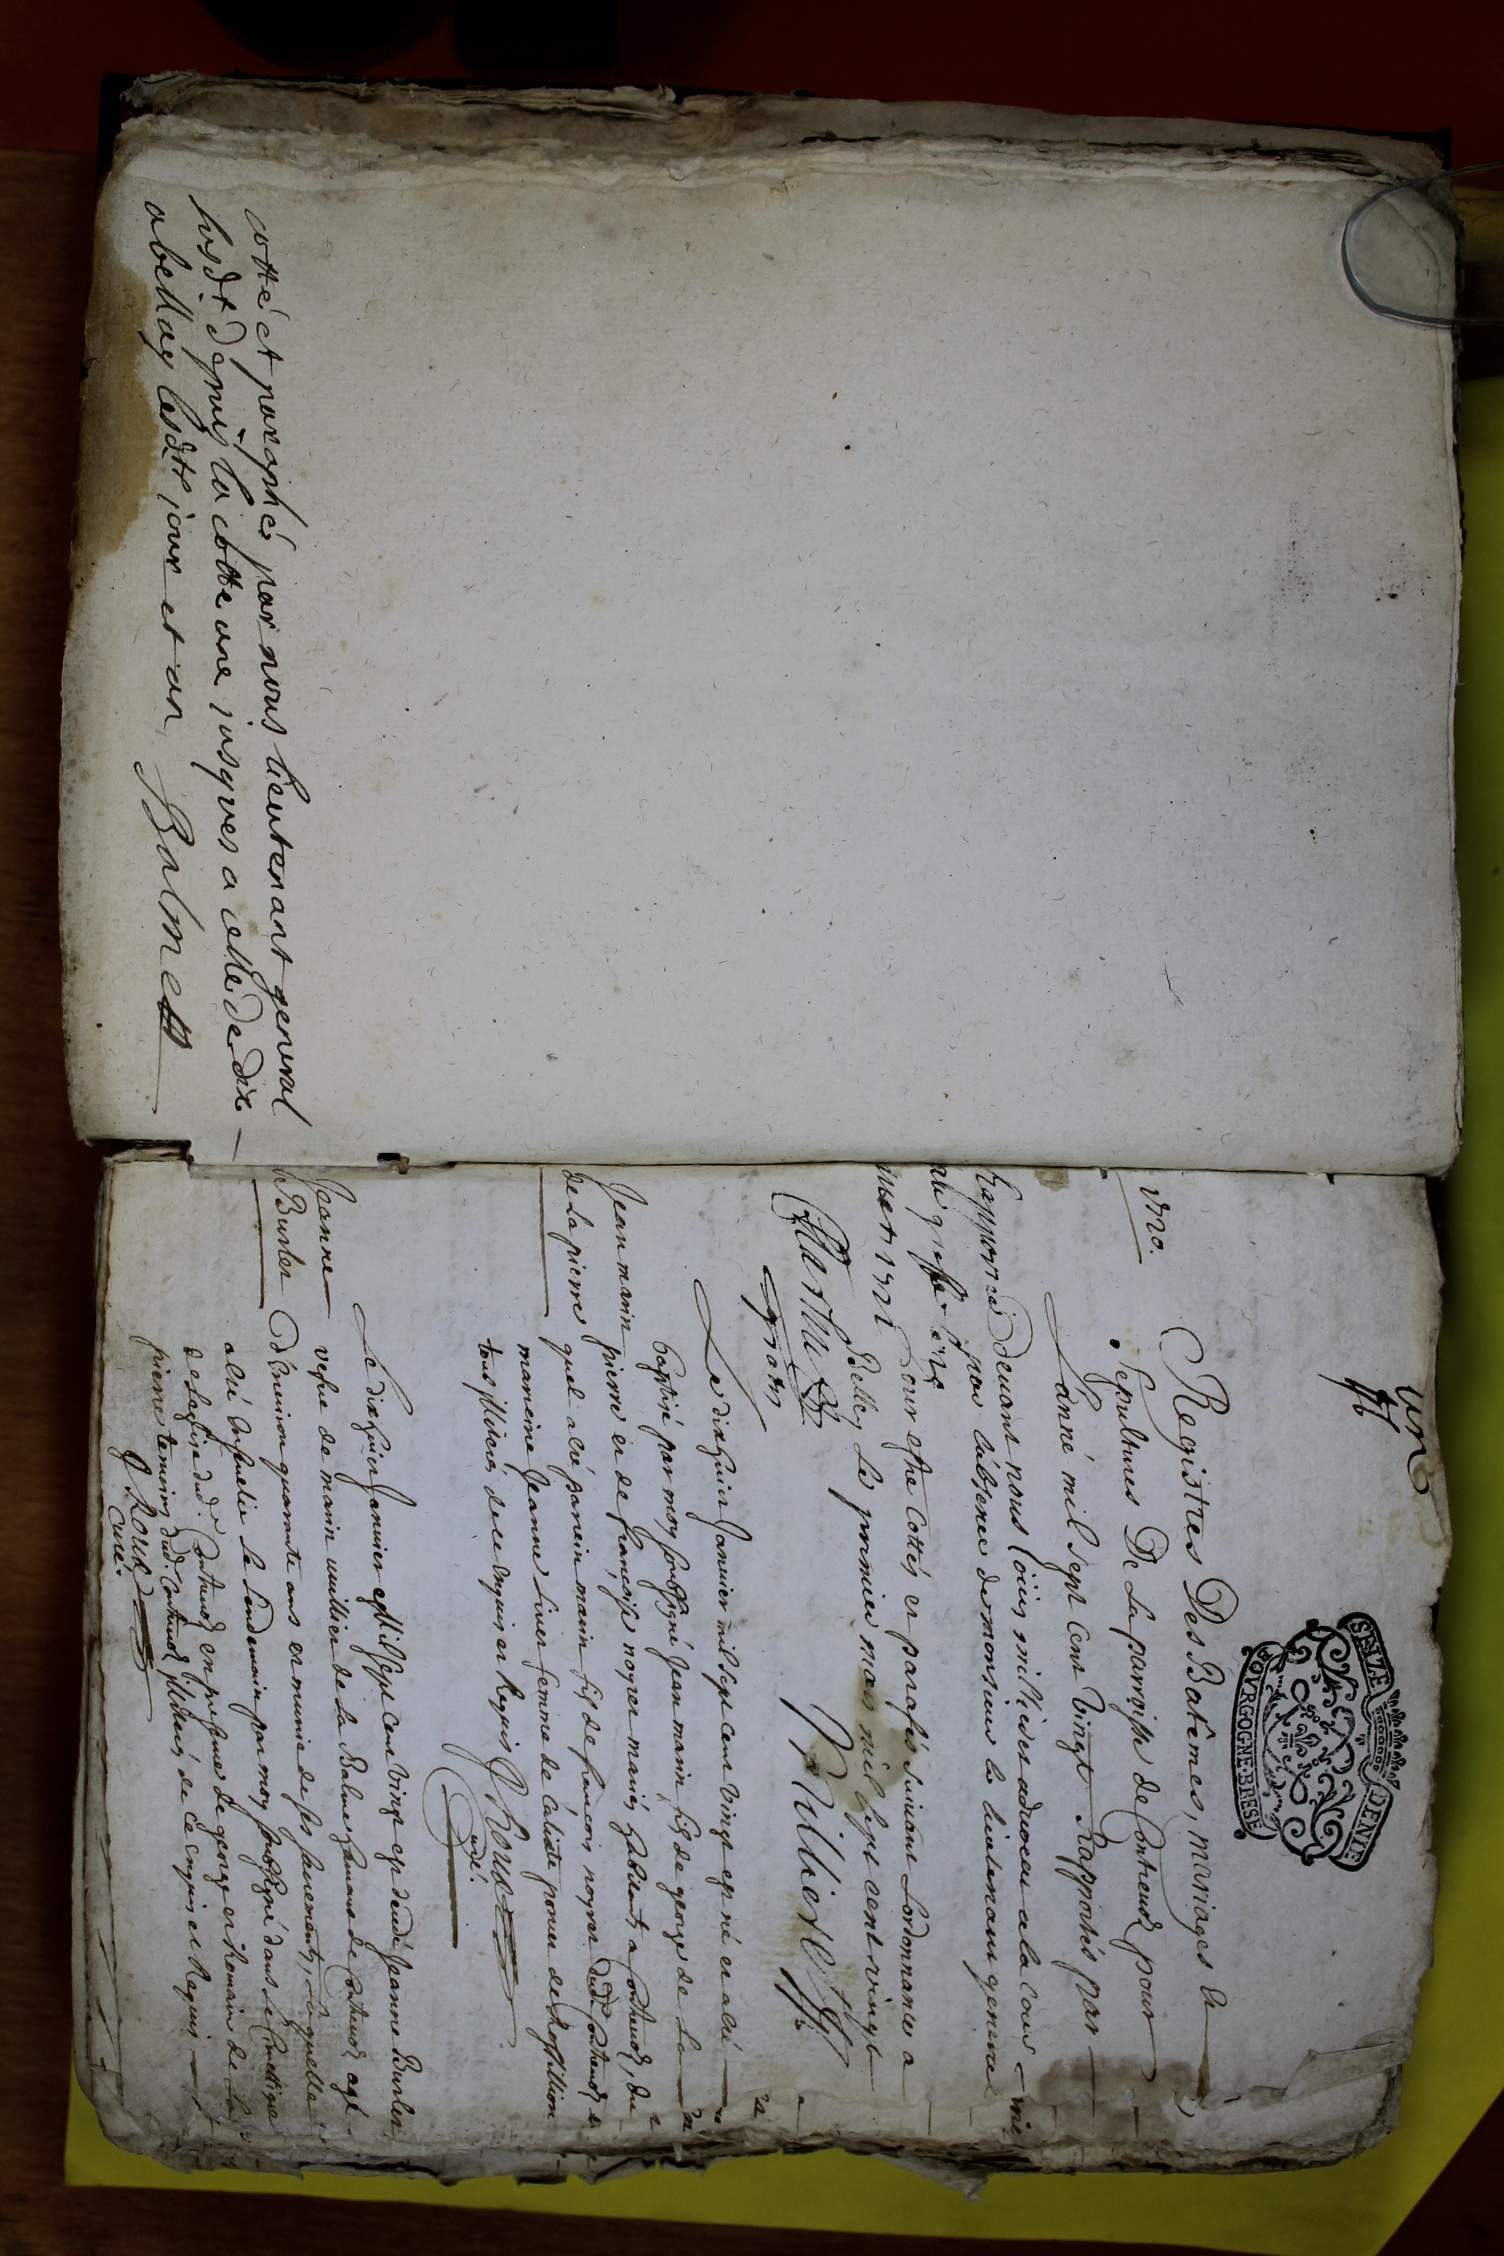 cotté et paraphé par nous lieutenant general
susdt depuis la cotte une jusques a celle de dix
a bellay lesdtt jour et an Balmett
un
SENZE DENIE
BOVRGOGNE·BRESE
1720.
Registres Des Batêmes, mariages et
Sepultures De La parroisse de Contrevoz pour
L'année mil sept cent vingt Rapportés par
devant nous Louis milliet advocat a la Cour
pour l'absence de monsieur le lieutenant general
pour estre Cottés et parafés suivant Lordonnance a
Belley Le premier mars mil sept cent vingt
Rapporté
au greffe
1721
Milliet
Le dixhuit Janvier mil sept cent vingt est né et a été
baptisé par moy soussigné Jean marin fils de george de La
Jean marin
De la pierre
pierre et de françoise noyret mariés habitants a Contrevoz, du
quel a été parrein marin fils de francois noyret dudt Contrevoz et
marreine Jeanne femme de Calixte de Rossillion
tous illiterés de ce enquis et Requis J Roux
Curé.
Le dixhuit Janvier mil sept cent vingt est decedé Jeanne Burlet
Jeanne
Burlet
vefve de marin millier de la Balme hameau de Contrevoz agé
D'environ quarante ans et munie de ses sacrements, Laquelle
a été Ensevelie le Lendemain par moy soussigné dans le Cimetiere
de Leglise dudt Contrevoz en presence de george et Romain de La
pierre temoins dudt Contrevoz illiterés de ce enquis et Requis
J Roux
Curé.